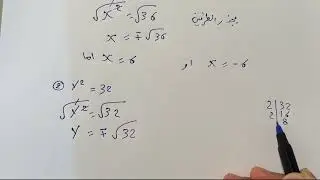 √x² = √36 بجذر الطرفين
x = ∓√36
اما x = 6 او x = -6
② y² = 32
√y² = √32
y = ∓√32
2 | 32
2 | 16
8